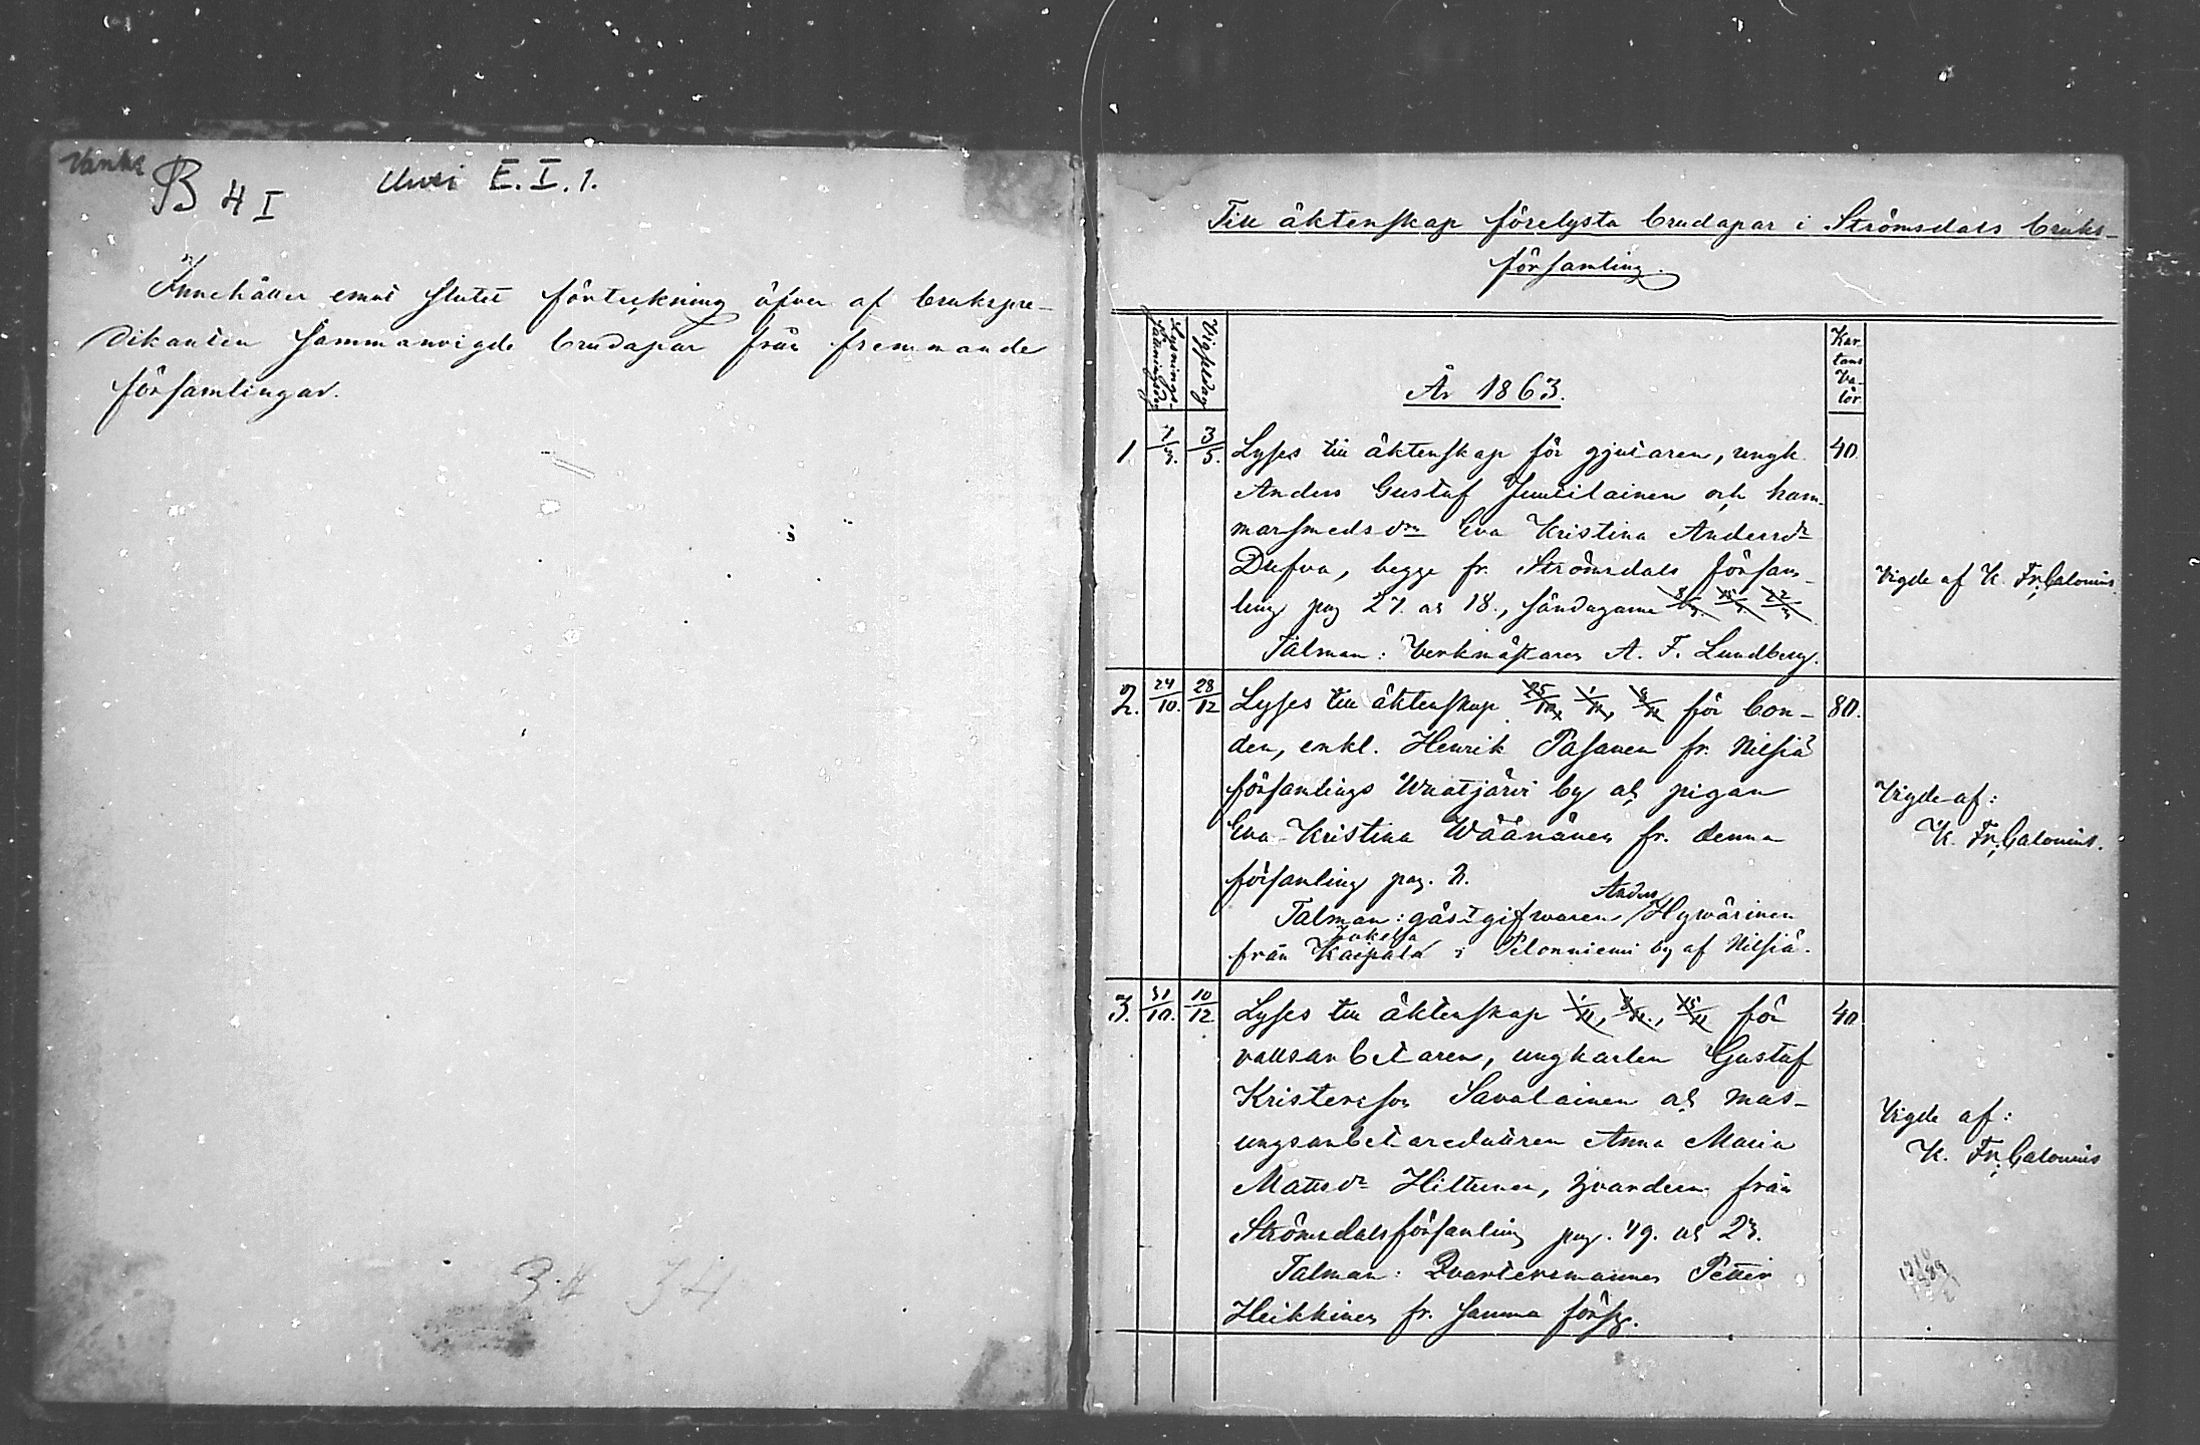 Vanha
B 4 I
Uusi E. I. 1.
Innehåller emot slutet förteckning öfver af brukspre-
dikanten sammanvigde brudapar från fremmande
församlingar.
34 34
Till äktenskap förelysta brudapar i Strömsdals bruks-
församling.
Lysnings-
sättningsdag
Vigseldag
År 1863.
Kar-
tans
Va-
lör.
1 7/3. 3/5. Lyses till äktenskap för gjutaren, ungk. 40.
Anders Gustaf Juutilainen och ham-
marsmedsdrn Eva Kristina Andersdr
Dufva, begge fr. Strömsdals försam-
ling pag 27. och 18., söndagarne 8/3. 15/3. 22/3
Talman: Verkmästaren A. F. Lundberg.
Vigde af K. Fr. Calonius.
2. 24/10. 28/12 Lyses till äktenskap 25/10, 1/11, 8/11 för bon- 80.
den, enkl. Henrik Pasanen fr. Nilsiä
församlings Wuotjärvi by och pigan
Eva Kristina Wäänänen fr. denna
församling pag. 2.
Talman: gästgifwaren Anders Hywärinen
från Kaipala i Pelonniemi by af Nilsiä.
Vigde af:
K. Fr. Calonius.
3. 31/10. 10/12. Lyses till äktenskap 1/11, 8/11., 15/11 för 40
vallsarbetaren, ungkarlen Gustaf
Kristersson Savolainen och mas-
ungsarbetaredottren Anna Maria
Mattsdr Hiltunen, hvardera från
Strömsdalsförsamling pag. 49. och 23.
Talman: Qvartersmannen Petter
Heikkinen fr. samma försg.
Vigde af:
K. Fr. Calonius